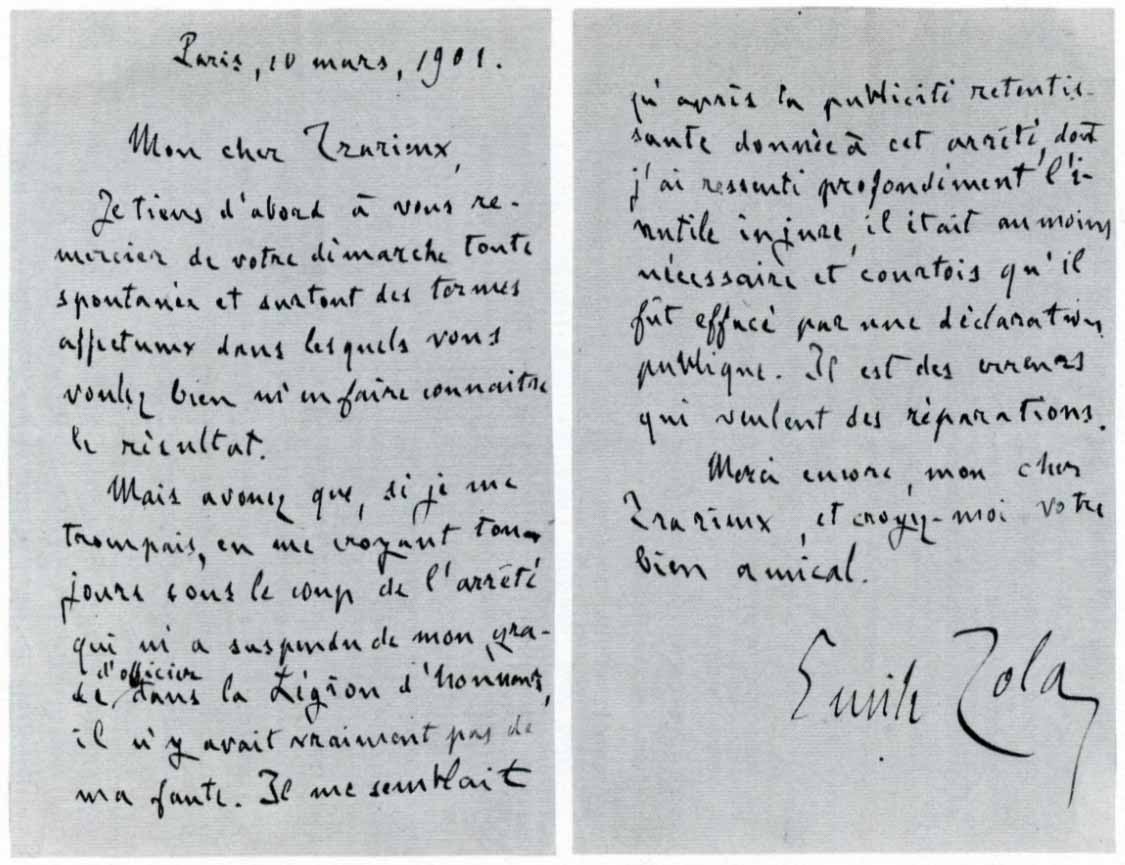 Paris, 10 mars, 1901.
Mon cher Trarieux,
Je tiens d'abord à vous re-
mercier de votre démarche toute
spontanée et surtout des termes
affectueux dans lesquels vous
voulez bien m'en faire connaître
le résultat.
Mais avouez que, si je me
trompais, en me croyant tou-
jours sous le coup de l'arrêté
qui m'a suspendu de mon gra-
d'officier
de dans la Légion d'honneur,
il n'y avait vraiment pas de
ma faute. Il me semblait
qu'après la publicité retentis-
sante donnée à cet arrêté, dont
j'ai ressenti profondément l'i-
nutile injure, il était au moins
nécessaire et courtois qu'il
fût effacé par une déclaration
publique. Il est des erreurs
qui veulent des réparations.
Merci encore, mon cher
Trarieux, et croyez-moi votre
bien amical.
Emile Zola